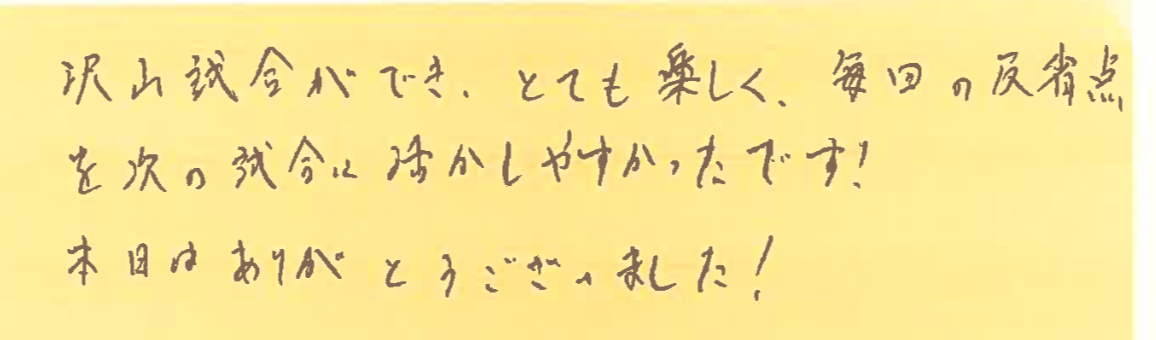 沢山試合ができ、とても楽しく、毎回の反省点
を次の試合に活かしやすかったです!
本日はありがとうございました!